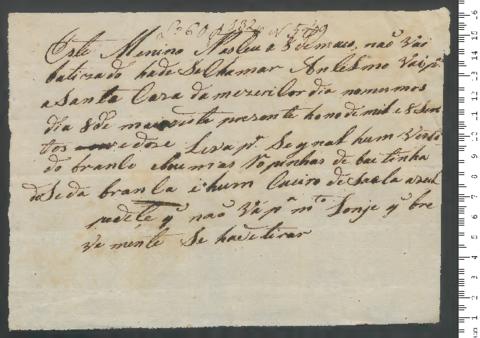 Este Menino Nasceu a 8 de maio, não vai
batizado hade se Chamar Antelmo Vai pª
a Santa Caza da mezericordia no mesmo
dia 8 de maio deste prezente hano de mil e 8 sen
tos e doze Leva pr Segnal hum Vestido
do branco e humas Ropinhas de baetinha
da Seda branca e hum Cueiro de azul
pedece q não Vá pª mto Lonje q bre
ve mente Se hade tirar